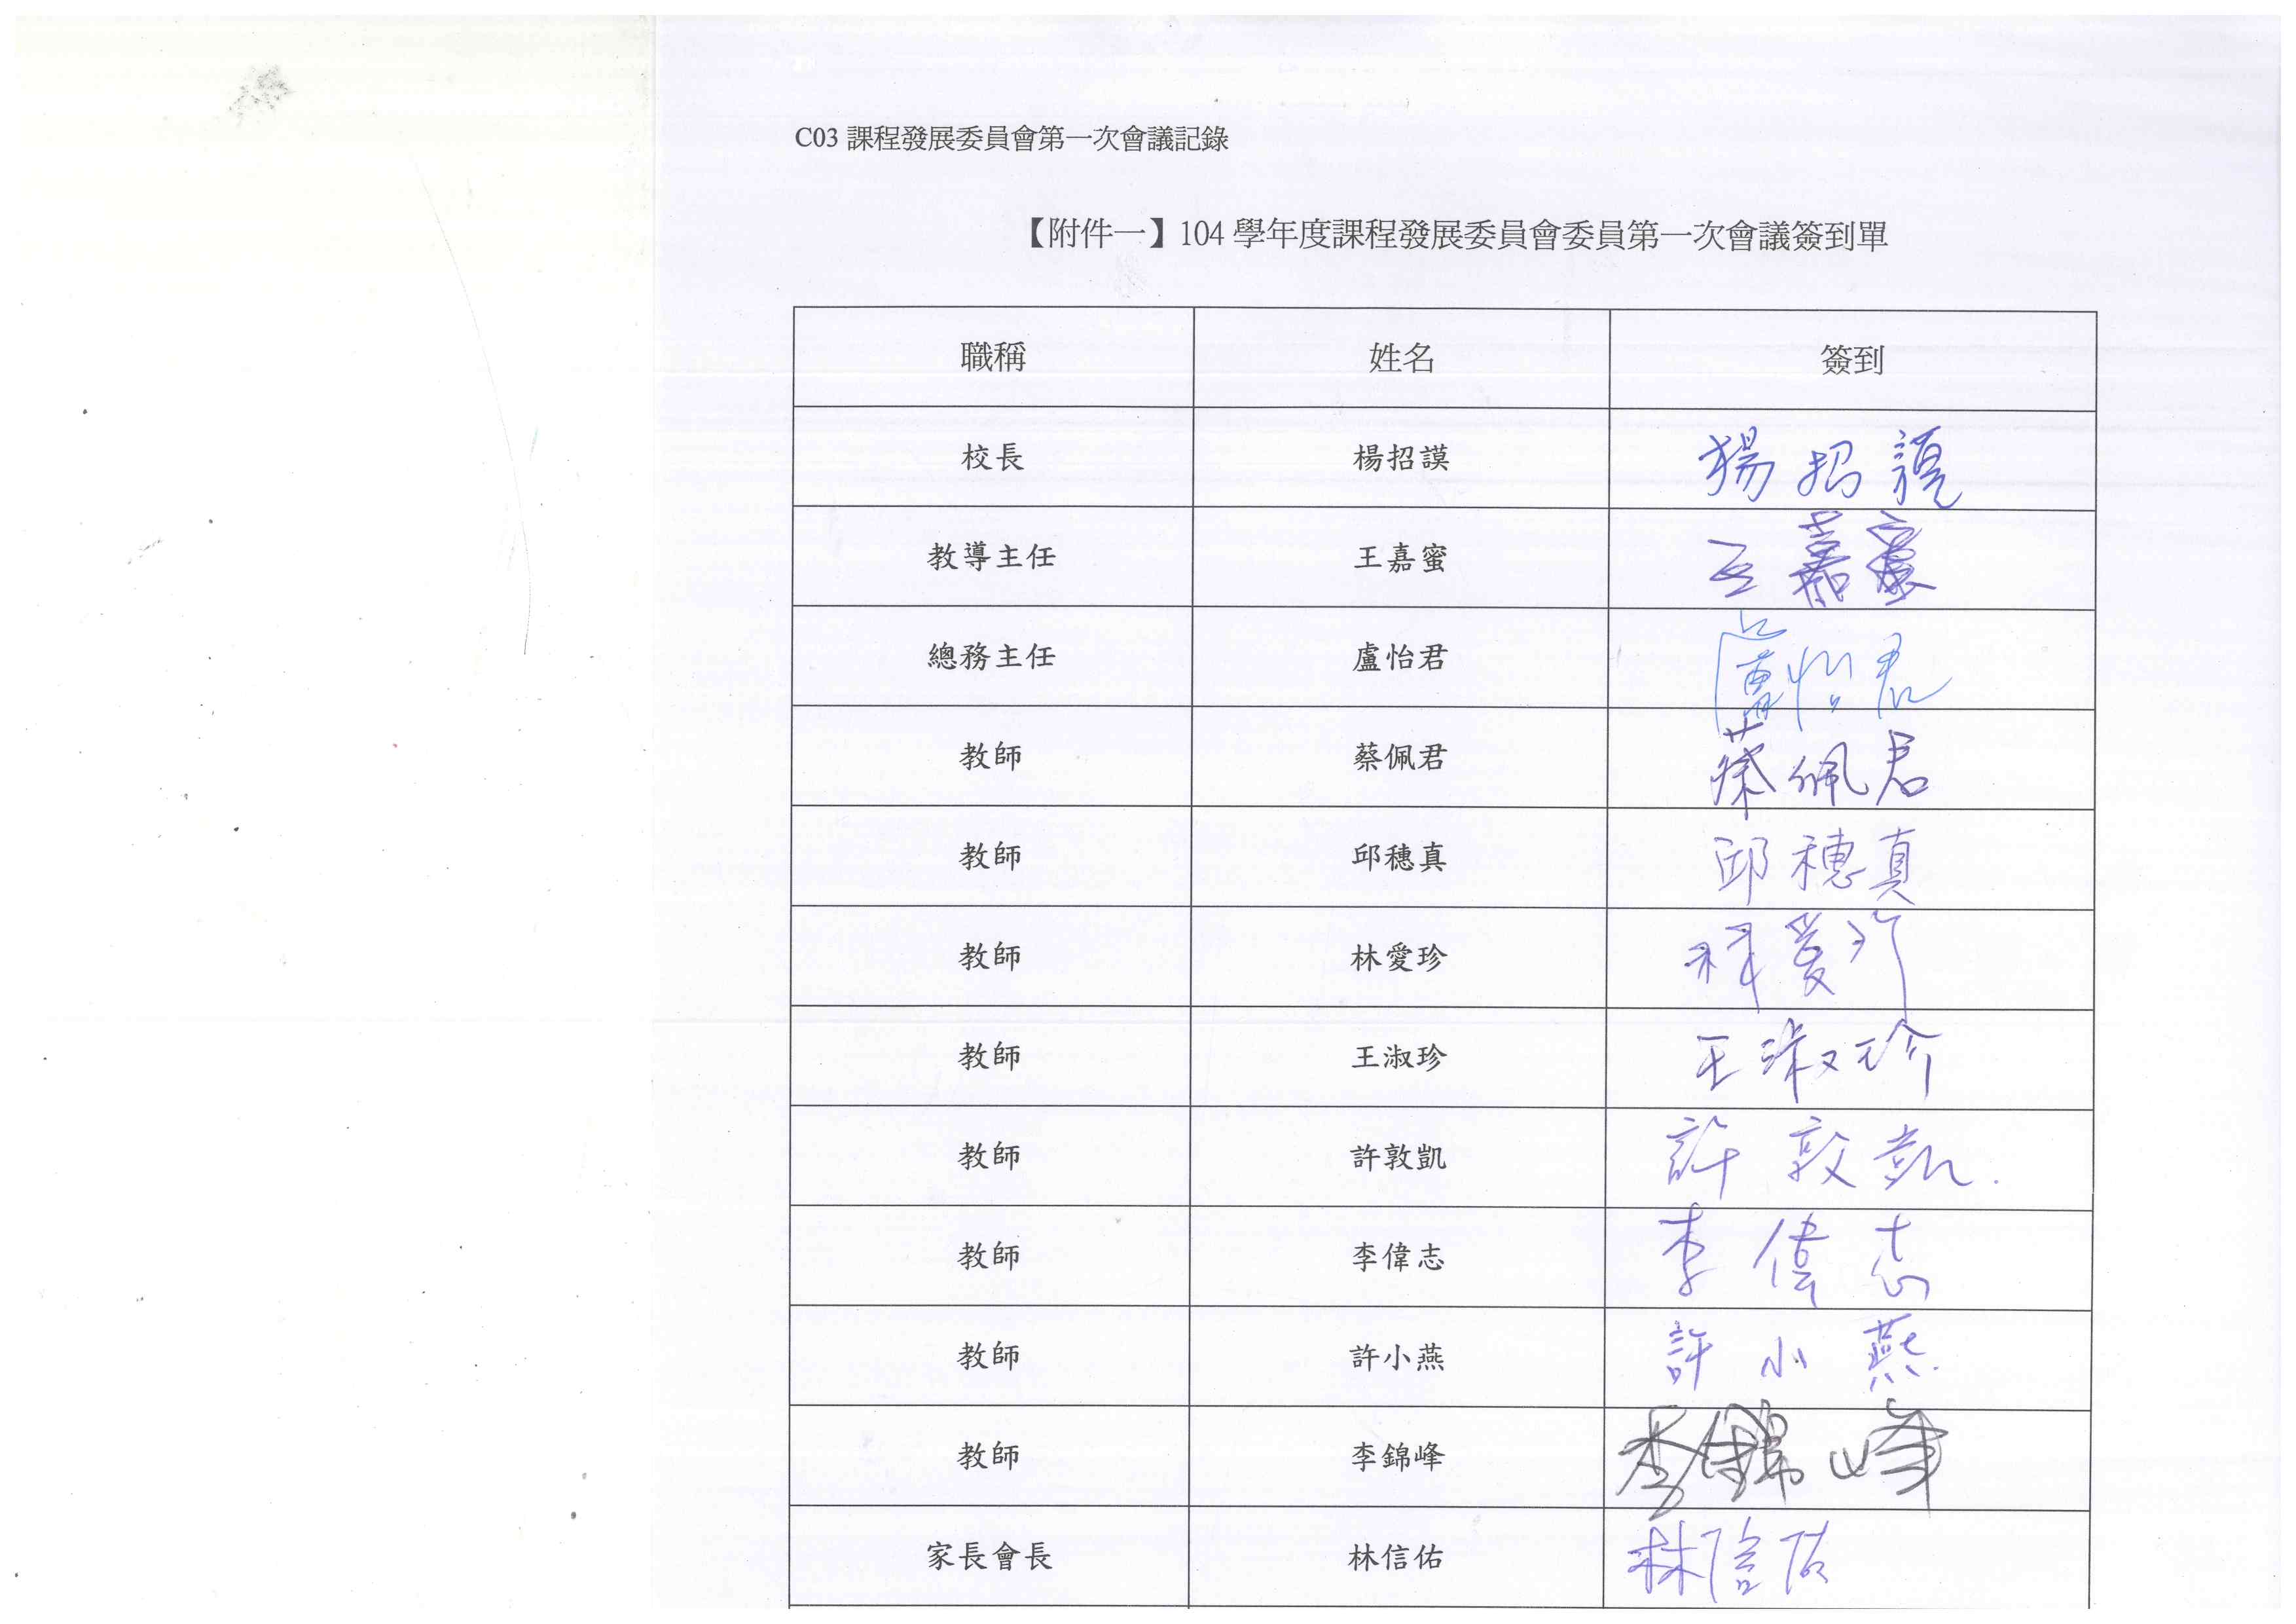 C03 課程發展委員會第一次會議記錄
【附件一】104 學年度課程發展委員會委員第一次會議簽到單
職稱 姓名 簽到
校長 楊招謨 楊招謨
教導主任 王嘉蜜 王嘉蜜
總務主任 盧怡君 盧怡君
教師 蔡佩君 蔡佩君
教師 邱穗真 邱穗真
教師 林愛珍 林愛珍
教師 王淑珍 王淑珍
教師 許敦凱 許敦凱.
教師 李偉志 李偉志
教師 許小燕 許小燕.
教師 李錦峰 李錦峰
家長會長 林信佑 林信佑